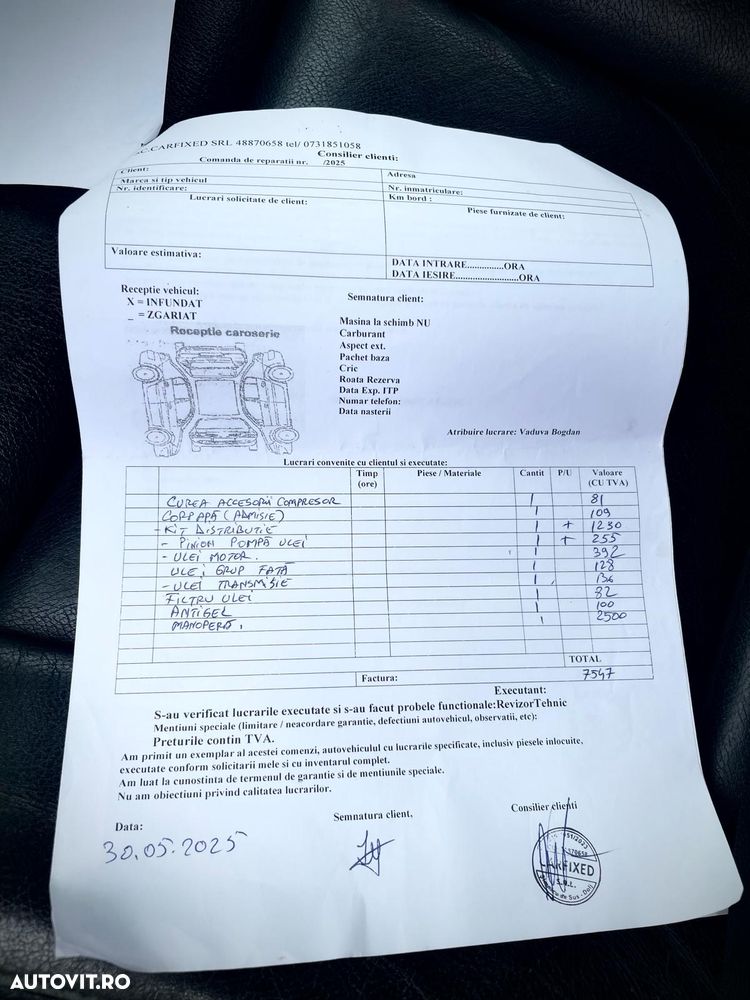 S.C.CARFIXED SRL 48870658 tel/ 0731851058
Consilier clienti:
Comanda de reparatii nr. /2025
Client:
Adresa
Marca si tip vehicul
Nr. identificare:
Nr. inmatriculare:
Km bord :
Lucrari solicitate de client:
Piese furnizate de client:
Valoare estimativa:
DATA INTRARE...............ORA
DATA IESIRE..........................ORA
Receptie vehicul:
X = INFUNDAT
_ = ZGARIAT
Receptie caroserie
Semnatura client:
Masina la schimb NU
Carburant
Aspect ext.
Pachet baza
Cric
Roata Rezerva
Data Exp. ITP
Numar telefon:
Data nasterii
Atribuire lucrare: Vaduva Bogdan
Lucrari convenite cu clientul si executate:
Timp (ore) Piese / Materiale Cantit P/U Valoare (CU TVA)
CUREA ACCESORII COMPRESOR 1 81
CORP APĂ (ADMISIE) 1 109
- KIT DISTRIBUTIE 1 + 1230
- PINION POMPĂ ULEI 1 + 255
- ULEI MOTOR. 1 392
ULEI GRUP FATĂ 1 128
- ULEI TRANSMISIE 1 136
FILTRU ULEI 1 82
ANTIGEL 1 100
MANOPERĂ, 1 2500
TOTAL
Factura: 7547
Executant:
S-au verificat lucrarile executate si s-au facut probele functionale:RevizorTehnic
Mentiuni speciale (limitare / neacordare garantie, defectiuni autovehicul, observatii, etc):
Preturile contin TVA.
Am primit un exemplar al acestei comenzi, autovehiculul cu lucrarile specificate, inclusiv piesele inlocuite,
executate conform solicitarii mele si cu inventarul complet.
Am luat la cunostinta de termenul de garantie si de mentiunile speciale.
Nu am obiectiuni privind calitatea lucrarilor.
Data:
Semnatura client,
Consilier clienti
30.05.2025
CARFIXED
S.R.L.
de Sus - Dolj
AUTOVIT.RO